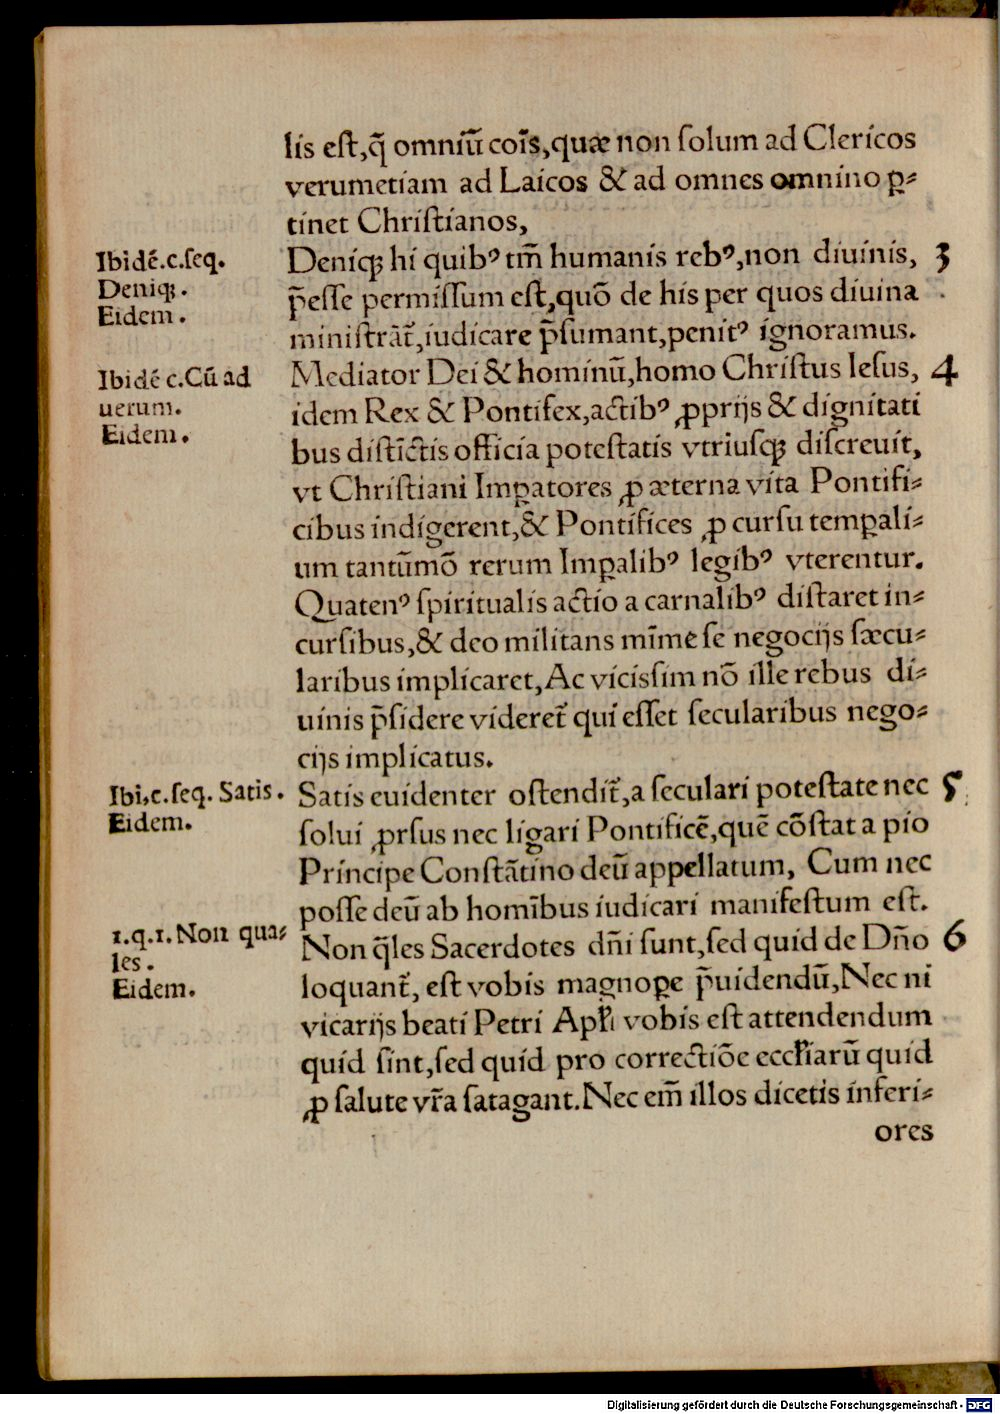 lis eſt,q̃ omniũ coĩs,quæ non ſolum ad Clericos
verumetiam ad Laicos & ad omnes omnino ꝑ⸗
tinet Chriſtianos,
Ibidẽ.c.ſeq.
Deniqꝫ.
Eidem.
Deniqꝫ hi quibꝰ tm̃ humanis rebꝰ,non diuinis, 3
p̃eſſe permiſſum eſt,quõ de his per quos diuina
miniſtrãt᷑,iudicare p̃ſumant,penitꝰ ignoramus.
Ibidẽ c.Cũ ad
uerum.
Eidem.
Mediator Dei & hominũ,homo Chriſtus Ieſus, 4
idem Rex & Pontifex,actibꝰ ꝓprijs & dignitati
bus diſtĩctis officia poteſtatis vtriuſqꝫ diſcreuit,
vt Chriſtiani Imꝑatores ꝓ æterna vita Pontifi⸗
cibus indigerent,& Pontifices ꝓ curſu temꝑali⸗
um tantũmõ rerum Imꝑalibꝰ legibꝰ vterentur.
Quatenꝰ ſpiritualis actio a carnalibꝰ diſtaret in⸗
curſibus,& deo militans mĩme ſe negocijs ſæcu⸗
laribus implicaret,Ac viciſsim nõ ille rebus di⸗
uinis p̃ſidere videret᷑ qui eſſet ſecularibus nego⸗
cijs implicatus.
Ibi,c.ſeq. Satis.
Eidem.
Satis euidenter oſtendit᷑,a ſeculari poteſtate nec 5
ſolui ꝓrſus nec ligari Pontificẽ,quẽ cõſtat a pio
Principe Conſtãtino deũ appellatum, Cum nec
poſſe deũ ab homĩbus iudicari manifeſtum eſt.
1.q.1.Non qua⸗
les.
Eidem.
Non q̃les Sacerdotes dñi ſunt,ſed quid de Dño 6
loquant᷑, eſt vobis magnoꝑe p̃uidendũ,Nec ni
vicarijs beati Petri Apƚi vobis eſt attendendum
quid ſint,ſed quid pro correctiõe eccƚiarũ quid
ꝓ ſalute vr̃a ſatagant.Nec em̃ illos dicetis inferi⸗
ores
Digitalisierung gefördert durch die Deutsche Forschungsgemeinschaft - DFG